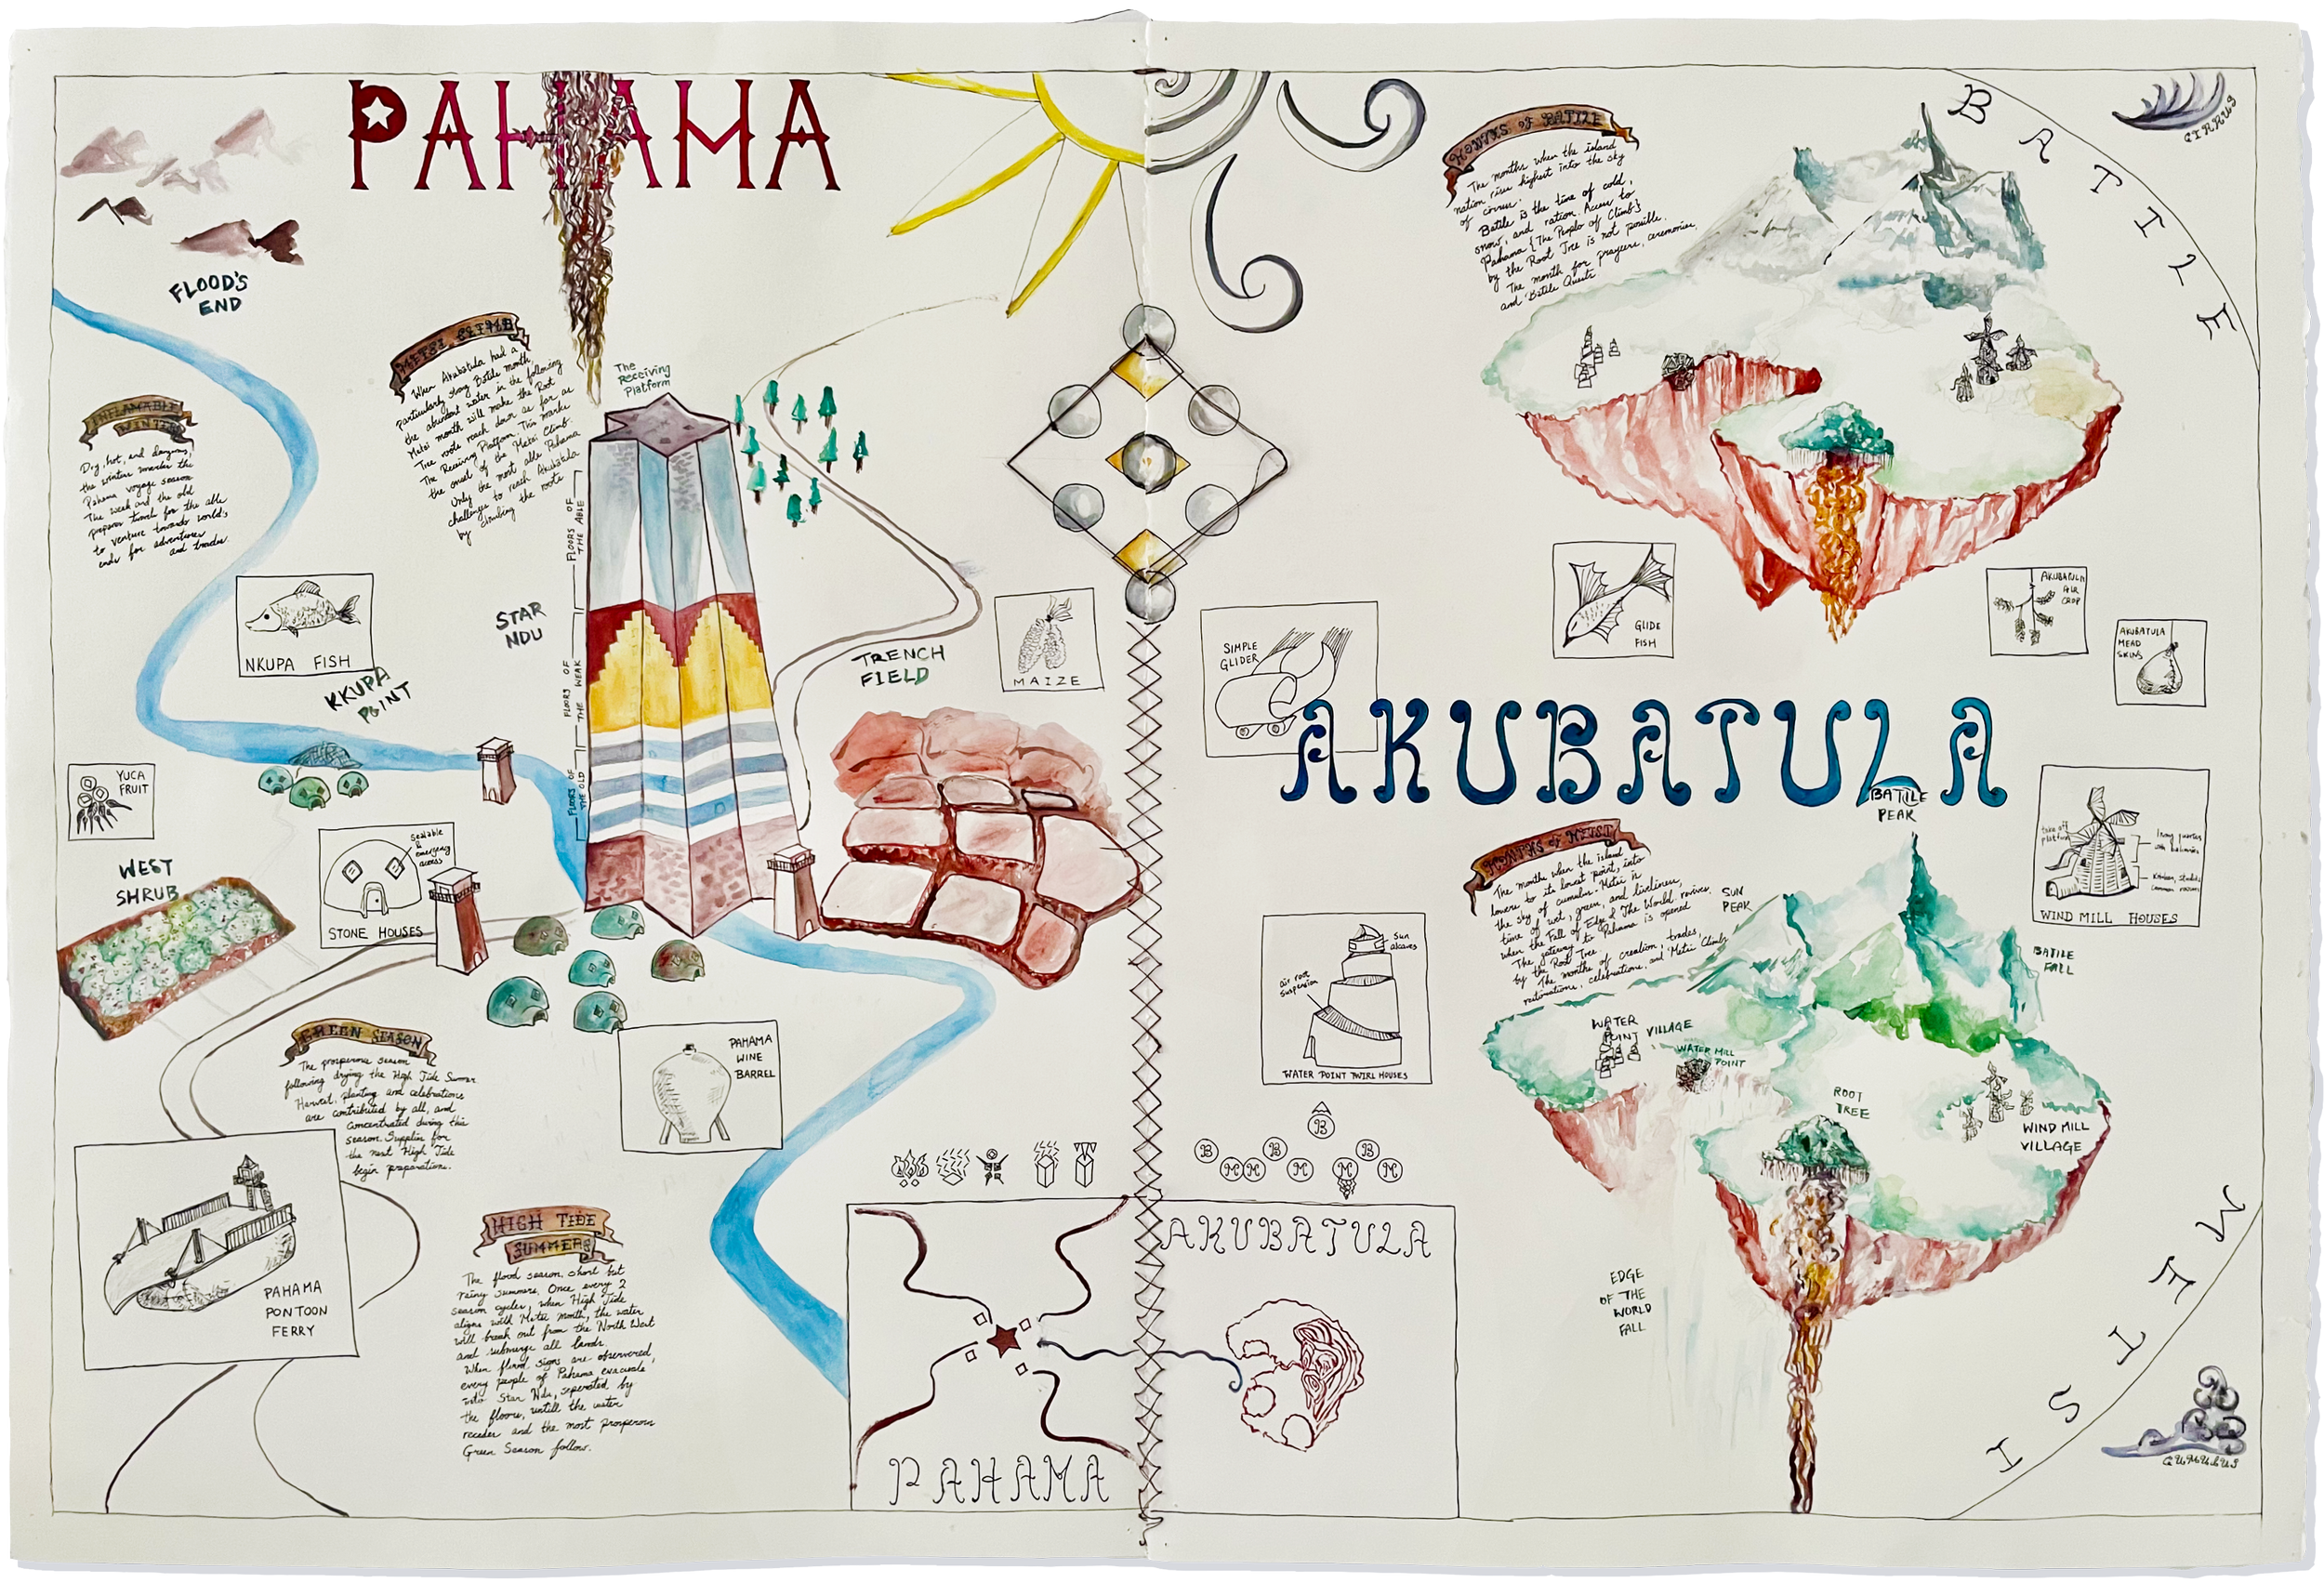 PAHAMA
FLOOD'S
END
METSI CLIMB
When Akubatula had a
particularly strong Batile month,
the abundant water in the following
Metsi month will make the Root
Tree roots reach down as far as
The Receiving Platform. This marks
the onset of the Metsi Climb.
Only the most able Pahama
challenges to reach Akubatula
by climbing the roots
The
Receiving
Platform
INFLAMABLE
WINTER
Dry, hot, and dangerous,
the winter marks the
Pahama voyage season.
The weak and the old
prepares travel for the able
to venture towards world's
ends for adventures
and trades.
NKUPA FISH
KKUPA
POINT
STAR
NDU
FLOORS OF
THE ABLE
FLOORS OF
THE WEAK
FLOORS OF
THE OLD
TRENCH
FIELD
MAIZE
YUCA
FRUIT
WEST
SHRUB
sealable
&
emergency
access
STONE HOUSES
GREEN SEASON
The prosperous season
following drying the High Tide Summer.
Harvest, planting and celebrations
are contributed by all, and
concentrated during this
season. Supplies for
the next High Tide
begin preparations.
PAHAMA
WINE
BARREL
PAHAMA
PONTOON
FERRY
HIGH TIDE
SUMMERS
The flood season, short but
rainy summers. Once every 2
season cycles, when High Tide
aligns with Metsi month, the water
will break out from the North West
and submerge all lands.
When flood signs are observed,
every people of Pahama evacuate
into Star Ndu, seperated by
the floors, untill the water
recedes and the most prosperous
Green Season follow.
PAHAMA
AKUBATULA
MONTHS OF BATILE
The months when the island
nation rises highest into the sky
of cirrus.
Batile is the time of cold,
snow, and ration. Access to
Pahama {The Purple of Climb}
by the Root Tree is not possible.
The month for prayers, ceremonies,
and Batile Quests.
BATILE
CIRRUS
SIMPLE
GLIDER
GLIDE
FISH
AKUBATULA
AIR
CROP
AKUBATULA
MEAD
SKINS
AKUBATULA
BATILE
PEAK
MONTHS of METSI
The months when the island
lowers to its lowest point, into
the sky of cumulus. Metsi is
time of wet, green, and liveliness,
when the Fall of Edge of The World revives.
The gateway to Pahama is opened
by the Root Tree.
The months of creation, trades,
restorations, celebrations, and Metsi Climb
SUN
PEAK
BATILE
FALL
take off
platform
WIND MILL HOUSES
Sun
alcoves
air root
suspension
WATER POINT TWIRL HOUSES
WATER
POINT VILLAGE
WATER MILL
POINT
ROOT
TREE
WIND MILL
VILLAGE
B
B B
M M M M B M
EDGE
OF THE
WORLD
FALL
METSI
CUMULUS